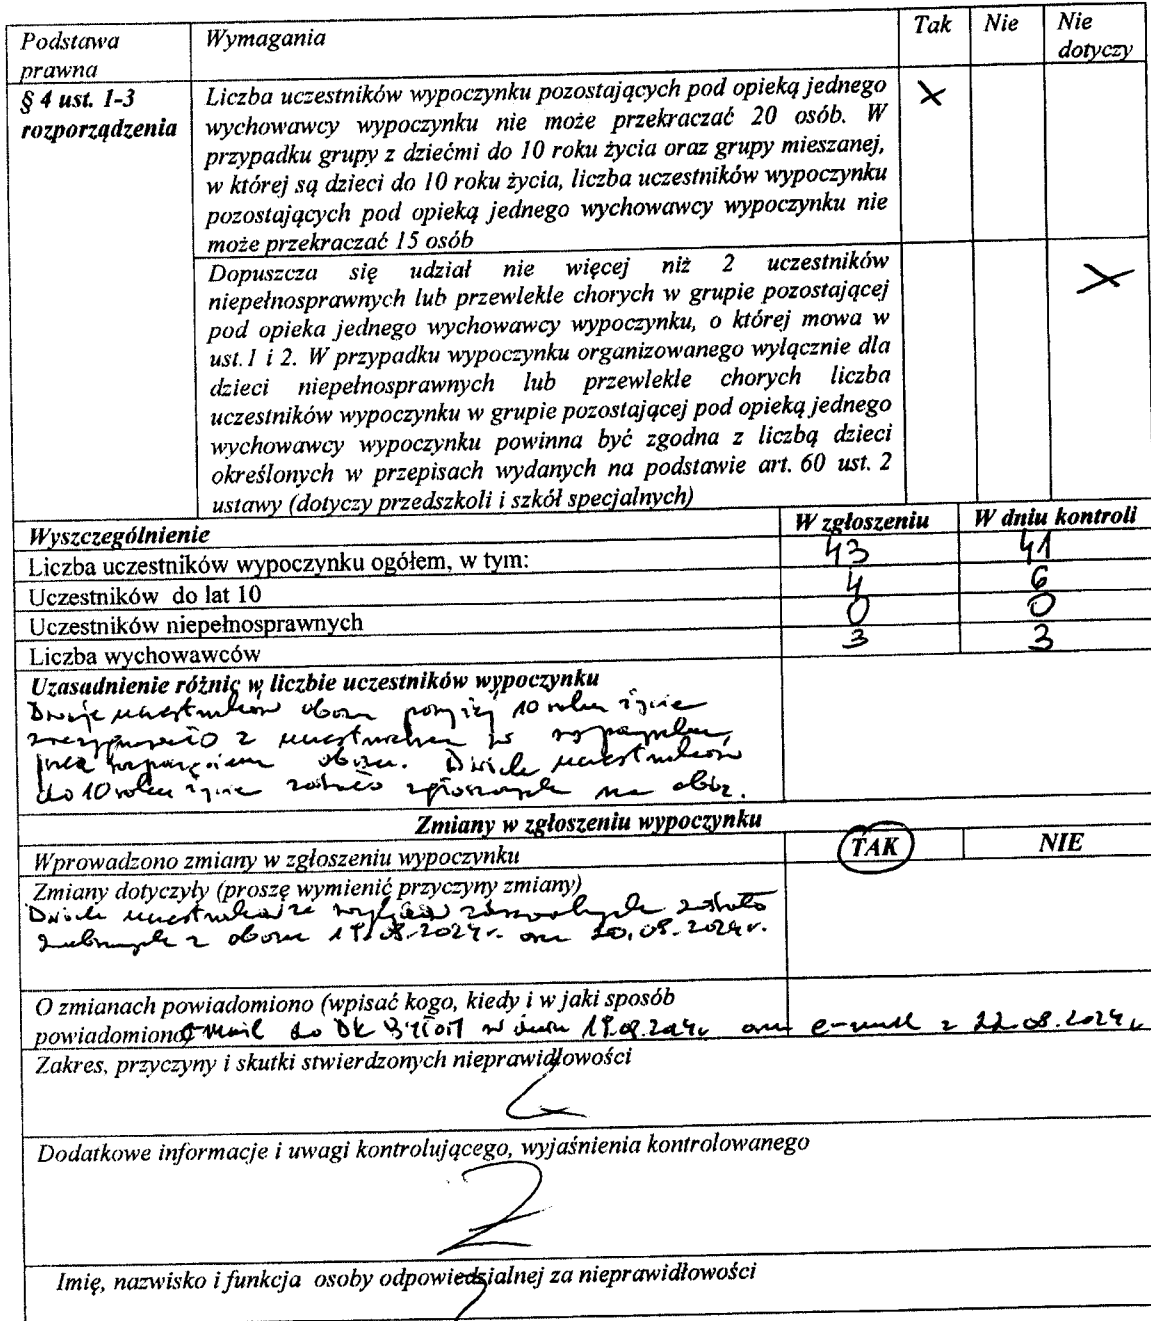 Podstawa prawna
Wymagania
Tak
Nie
Nie dotyczy
§ 4 ust. 1-3 rozporządzenia
Liczba uczestników wypoczynku pozostających pod opieką jednego
wychowawcy wypoczynku nie może przekraczać 20 osób. W
przypadku grupy z dziećmi do 10 roku życia oraz grupy mieszanej,
w której są dzieci do 10 roku życia, liczba uczestników wypoczynku
pozostających pod opieką jednego wychowawcy wypoczynku nie
może przekraczać 15 osób
X
Dopuszcza się udział nie więcej niż 2 uczestników
niepełnosprawnych lub przewlekle chorych w grupie pozostającej
pod opieka jednego wychowawcy wypoczynku, o której mowa w
ust.1 i 2. W przypadku wypoczynku organizowanego wyłącznie dla
dzieci niepełnosprawnych lub przewlekle chorych liczba
uczestników wypoczynku w grupie pozostającej pod opieką jednego
wychowawcy wypoczynku powinna być zgodna z liczbą dzieci
określonych w przepisach wydanych na podstawie art. 60 ust. 2
ustawy (dotyczy przedszkoli i szkół specjalnych)
X
Wyszczególnienie W zgłoszeniu W dniu kontroli
Liczba uczestników wypoczynku ogółem, w tym: 43 41
Uczestników do lat 10 4 6
Uczestników niepełnosprawnych 0 0
Liczba wychowawców 3 3
Uzasadnienie różnic w liczbie uczestników wypoczynku
Dwoje uczestników obozu powyżej 10 roku życia
zrezygnowało z uczestnictwa w wypoczynku
przed rozpoczęciem obozu. Dwoje uczestników
do 10 roku życia zostało zgłoszonych na obóz.
Zmiany w zgłoszeniu wypoczynku
Wprowadzono zmiany w zgłoszeniu wypoczynku TAK NIE
Zmiany dotyczyły (proszę wymienić przyczyny zmiany)
uczestników ze względów zdrowotnych zostało
z obozu 19.08.2024r. oraz 20.08.2024r.
O zmianach powiadomiono (wpisać kogo, kiedy i w jaki sposób
powiadomiono mail do DK w dniu 19.08.2024r oraz e-mail z 22.08.2024r
Zakres, przyczyny i skutki stwierdzonych nieprawidłowości
Dodatkowe informacje i uwagi kontrolującego, wyjaśnienia kontrolowanego
Imię, nazwisko i funkcja osoby odpowiedzialnej za nieprawidłowości